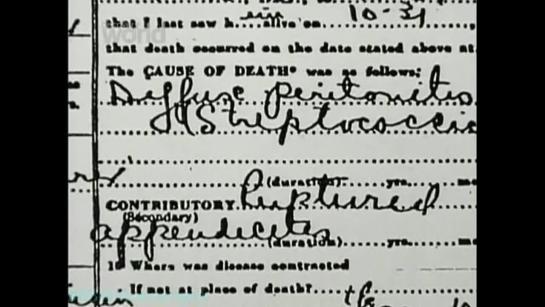 world
that I last saw h im alive on 10-31
that death occurred on the date stated above at
The CAUSE OF DEATH* was as follows:
Diffuse peritonitis
(Streptococcic
(duration) yrs. mo
CONTRIBUTORY Ruptured
(Secondary)
appendicitis
(duration) yrs. mo
18 Where was disease contracted
If not at place of death?